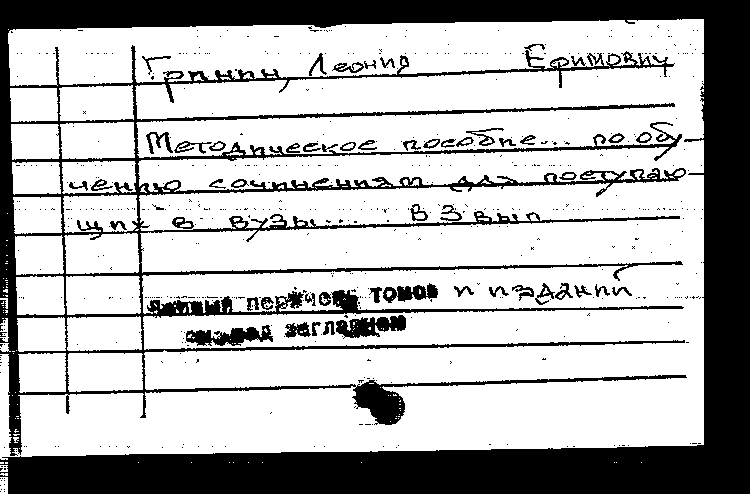 Гринин, Леонид Ефимович
Методическое пособие... по обу-
чению сочинениям для поступаю-
щих в вузы... В 3 вып
Полный перечень томов и изданий
см. под заглавием